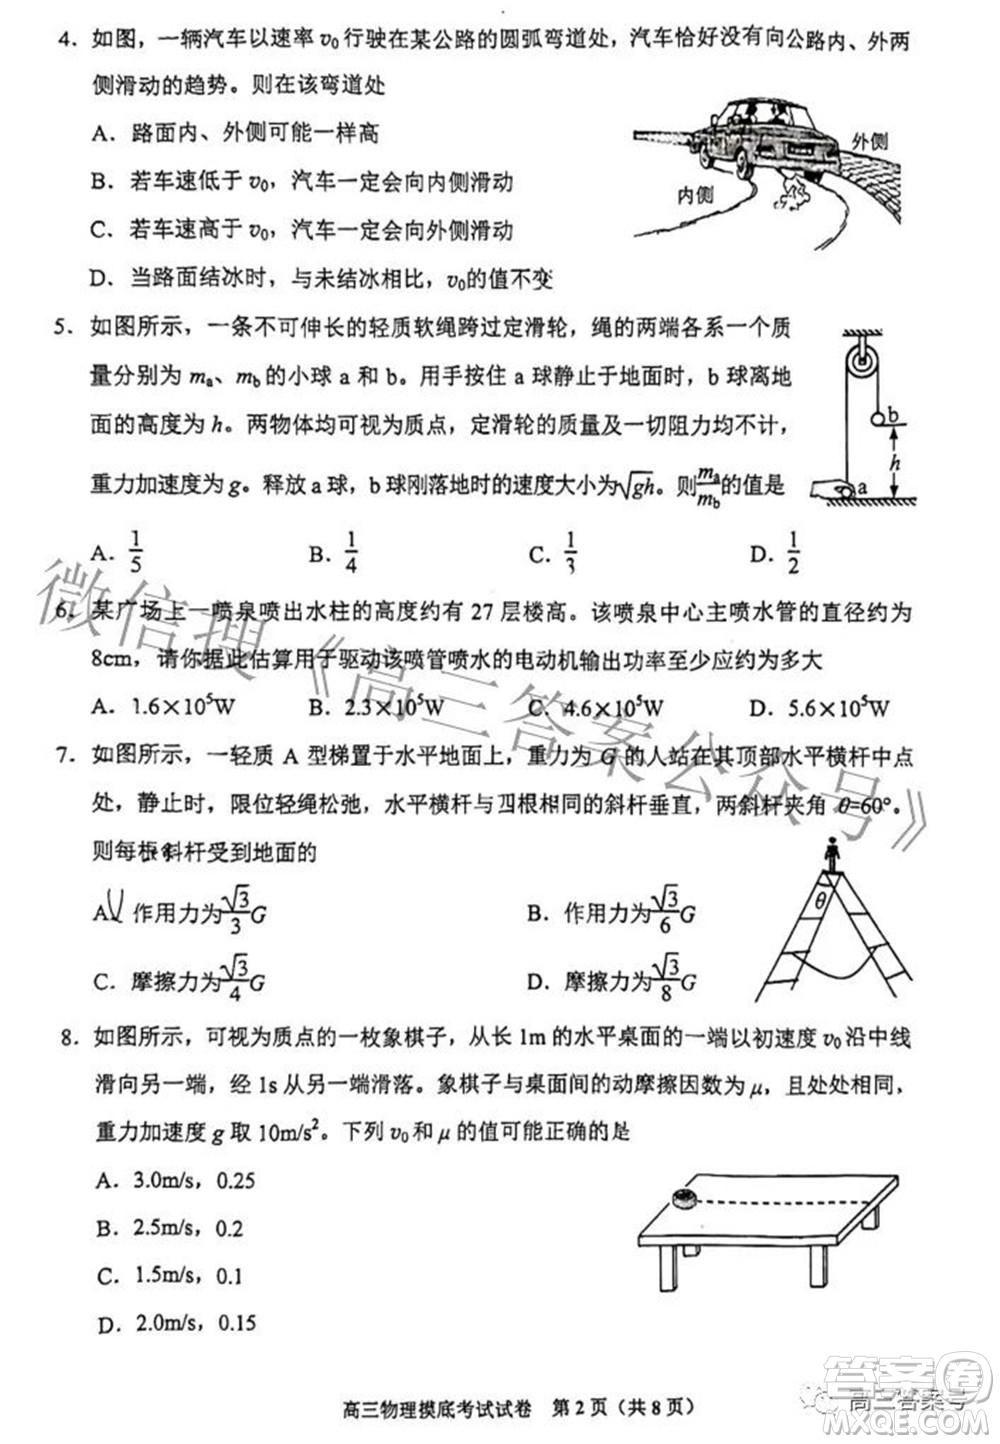 4．如图，一辆汽车以速率 v₀ 行驶在某公路的圆弧弯道处，汽车恰好没有向公路内、外两
侧滑动的趋势。则在该弯道处
A．路面内、外侧可能一样高
B．若车速低于 v₀，汽车一定会向内侧滑动
C．若车速高于 v₀，汽车一定会向外侧滑动
D．当路面结冰时，与未结冰相比，v₀的值不变
外侧
内侧
5．如图所示，一条不可伸长的轻质软绳跨过定滑轮，绳的两端各系一个质
量分别为 mₐ、m_b 的小球 a 和 b。用手按住 a 球静止于地面时，b 球离地
面的高度为 h。两物体均可视为质点，定滑轮的质量及一切阻力均不计，
重力加速度为 g。释放 a 球，b 球刚落地时的速度大小为√gh。则mₐ/m_b的值是
b
h
a
A．1/5 B．1/4 C．1/3 D．1/2
6．某广场上一喷泉喷出水柱的高度约有 27 层楼高。该喷泉中心主喷水管的直径约为
8cm，请你据此估算用于驱动该喷管喷水的电动机输出功率至少应约为多大
A．1.6×10⁵W B．2.3×10⁵W C．4.6×10⁵W D．5.6×10⁵W
7．如图所示，一轻质 A 型梯置于水平地面上，重力为 G 的人站在其顶部水平横杆中点
处，静止时，限位轻绳松弛，水平横杆与四根相同的斜杆垂直，两斜杆夹角 θ=60°。
则每根斜杆受到地面的
A．作用力为√3/3G B．作用力为√3/6G
C．摩擦力为√3/4G D．摩擦力为√3/8G
θ
8．如图所示，可视为质点的一枚象棋子，从长 1m 的水平桌面的一端以初速度 v₀ 沿中线
滑向另一端，经 1s 从另一端滑落。象棋子与桌面间的动摩擦因数为 μ，且处处相同，
重力加速度 g 取 10m/s²。下列 v₀ 和 μ 的值可能正确的是
A．3.0m/s，0.25
B．2.5m/s，0.2
C．1.5m/s，0.1
D．2.0m/s，0.15
高三物理摸底考试试卷 第 2 页（共 8 页）
微信搜《高三答案公众号》
高三答案号
答案圈
MXQE.COM